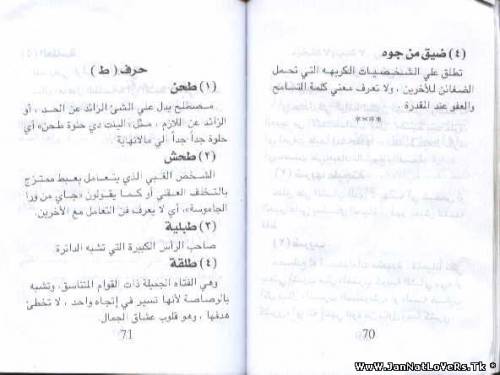 (٤) ضيق من جوه
تطلق علي الشخصيات الكريهه التي تحمل
الضغائن للأخرين ، ولا تعرف معني كلمة التسامح
والعفو عند المقدرة .
***
70
حرف ( ط )
(١) طحن
مصطلح يدل علي الشئ الزائد عن الحد ، أو
الزائد عن اللازم ، مثل: «البنت دي حلوة طحن» أي
حلوة جداً جداً جداً إلي مالانهاية
(٢) طحش
الشخص الغبي الذي يتعامل بعبط ممتزج
بالتخلف العقلي أو كما يقولون «جاي من ورا
الجاموسة»، أي لا يعرف فن التعامل مع الأخرين.
(٣) طبلية
صاحب الرأس الكبيرة التي تشبه الدائرة.
(٤) طلقة
وهي الفتاه الجميلة ذات القوام المتناسق، وتشبه
بالرصاصة لأنها تسير في إتجاه واحد ، لا تخطئ
هدفها ، وهو قلوب عشاق الجمال.
71
WwW.JanNatLoVeRs.Tk *